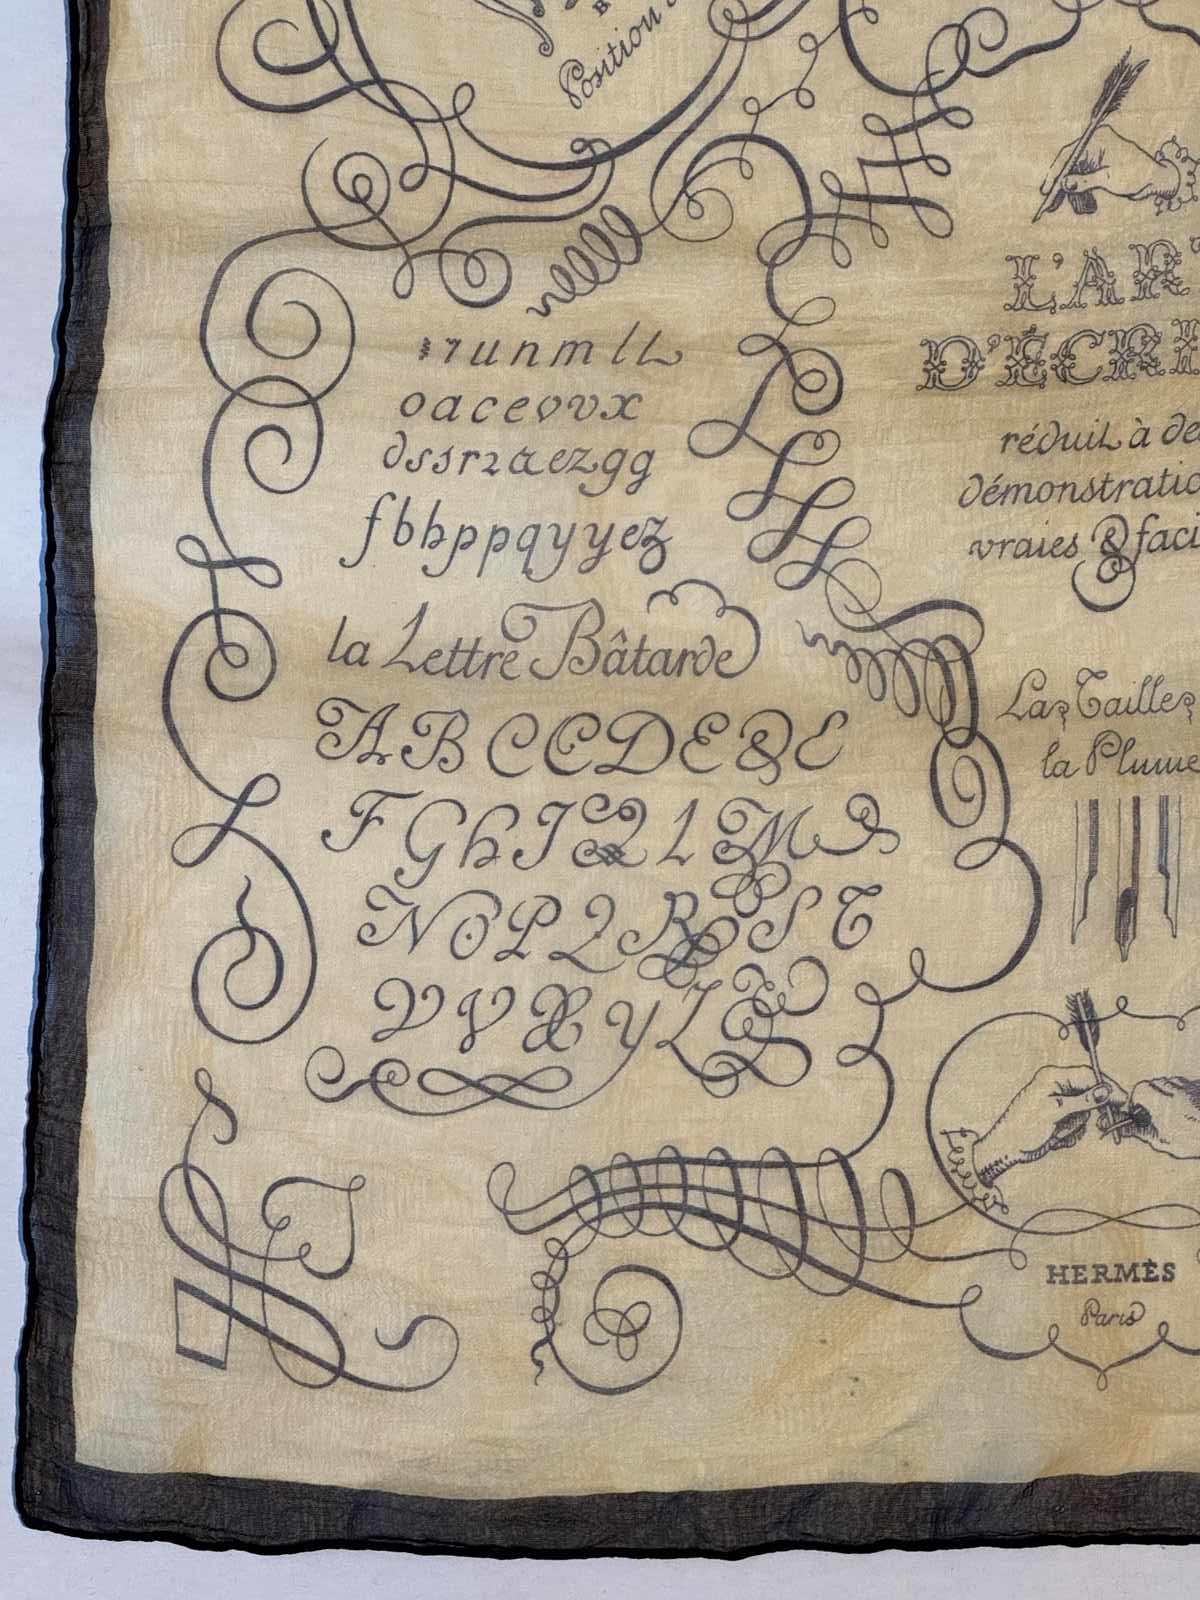 Position
L'AR
D'ÉCRI
réduit à de
démonstratio
vraies & faci
ı7unmlL
oaceovvx
dssrzaezgg
fbhppqyyez
la Lettre Bâtarde
ABCCDE&E
FGhIL1M
NOPQRST
VVXYZ&
La Taille
la Plume
HERMÈS
Paris